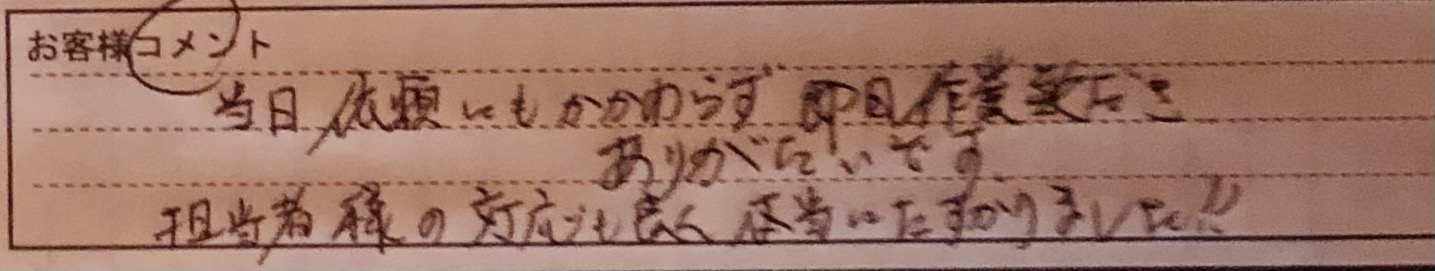 お客様コメント
当日依頼にもかかわらず 即日作業頂だき
ありがたいです。
担当者様の対応も良く 本当にたすかりました!!